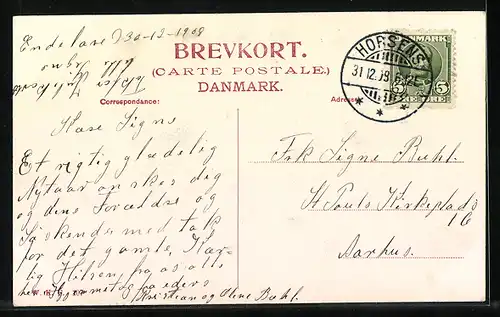 Endelave d 30-12-1908
BREVKORT.
(CARTE POSTALE.)
DANMARK.
Correspondance:
Adresse
HORSENS
31.12.09. 6-12E
DANMARK
5 5
Kære Signe
Et rigtig glædelig
Nytaar ønskes dig
og dine Forældre og
Søskende med tak
for det gamle, Kær-
lig Hilsen fra os alle
her
Kristian og Oline Buhl.
Frk Signe Buhl.
St Pouls Kirkeplads
16
Aarhus.